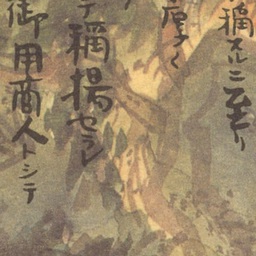 稱スルニ至リ
原ヅク
テ稱揚セラレ
御用商人トシテ